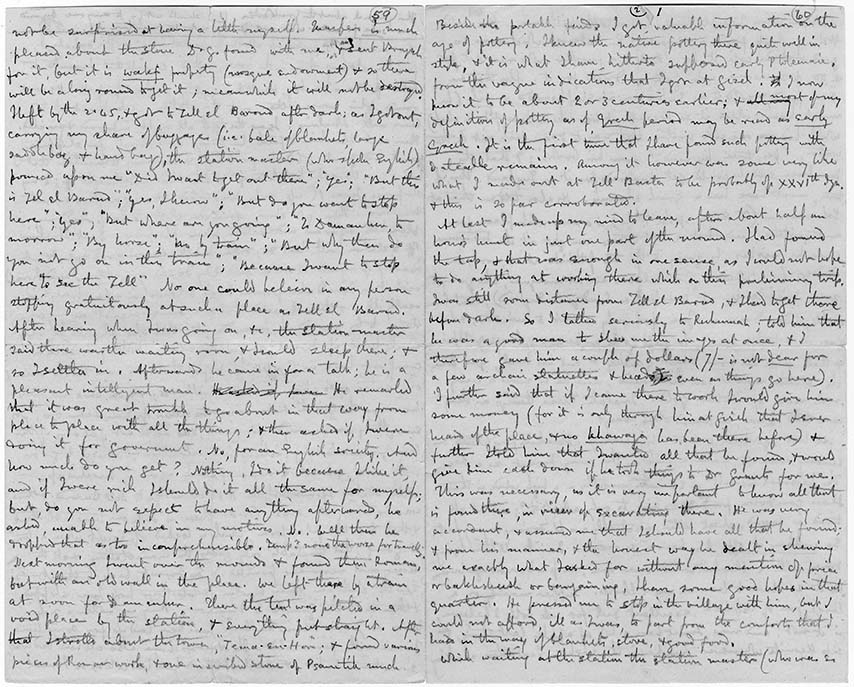 59
not be surprised at having a little myself. Maspero is much
pleased about the stone Dog, found with me, & sent Brugsch
for it, but it is wakf property (mosque endowment) & so there
will be a long round to get it; meanwhile it will not be destroyed
I left by the 2.45, & got to Tell el Barud after dark: as I got out,
carrying my share of baggage (i.e. bale of blankets, large
saddle bag, & hand bag), the station master (who spoke English)
pressed upon me "Did I want to get out there"; "Yes"; "But this
is Tel el Barud"; "Yes, I know"; "But do you want to stop
here"; "Yes", "But where are you going"; "To Damanhur, to
morrow"; "By horse"; "No by train"; "But why then do
you not go on in this train"; "Because I want to stop
here to see the Tell" No one could believe in any person
stopping gratuitously at such a place as Tell el Barud.
After hearing when I was going on, &c, the station master
said there was the waiting room, & I could sleep there; &
so I settled in. Afterwards he came in for a talk; he is a
pleasant intelligent man. He remarked
that it was great trouble to go about in that way from
place to place with all the things; & then asked if I were
doing it for government. No, for an English society. And
how much do you get? Nothing, I do it because I like it,
and if I were rich I should do it all the same for myself;
but, do you not expect to have anything afterwards, he
asked, unable to believe in my motives. No. Well then he
dropped that as too incomprehensible. none the worse fortunately.
Next morning I went over the mounds & found them Roman,
but with an old wall in the place. We left there by a train
at noon for Damanhur. There the tent was pitched in a
void place by the station, & everything put straight. After
that I strolled about the town, "Tema-en-Hor"; & found various
pieces of Roman work, & one inscribed stone of Psamtik much
(2) 1
60
Besides the portable finds I got valuable information on the
age of pottery. I knew the native pottery there quite well in
style, & it is what I have hitherto supposed early Ptolemaic,
from the vague indications that I got at Gizeh. I now
know it to be about 2 or 3 centuries earlier; & all most of my
definitions of pottery as of Greek period may be read as early
Greek. It is the first time that I have found such pottery with
dateable remains. Among it however was some very like
what I made out at Tell Basta to be probably of XXVIth Dyn.
& this is so far corroborated.
At last I made up my mind to leave, after about half an
hour's hunt in just one part of the mound. I had found
the top, & that was enough in one sense, as I could not hope
to do anything at working there which on this preliminary trip.
I was still some distance from Tell el Barud, & I had to get there
before dark. So I talked seriously to Ruhumah, told him that
he was a good man to shew me the images at once, & I
therefore gave him a couple of dollars (7/- is not dear for
a few archaic statuettes & heads, even as things go here).
I further said that if I came there to work I would give him
some money (for it is only through him at Gizeh that I ever
heard of the place, & no khawaga has been there before) &
further I told him that I wanted all that he found, & would
give him cash down if he took things to Dr Grants for me.
This was necessary, as it is very important to know all that
is found there, in view of excavating there. He was very
accordant, & assured me that I should have all that he found.
& from his manner, & the honest way he dealt in shewing
me exactly what I asked for without any mention of price
or bakhshish or bargaining, I have some good hopes in that
quarter. He pressed me to stop in the village with him, but I
could not afford, ill as I was, to part from the comforts that I
had in the way of blankets, stove, & good food.
While waiting at the station the station master (who was so